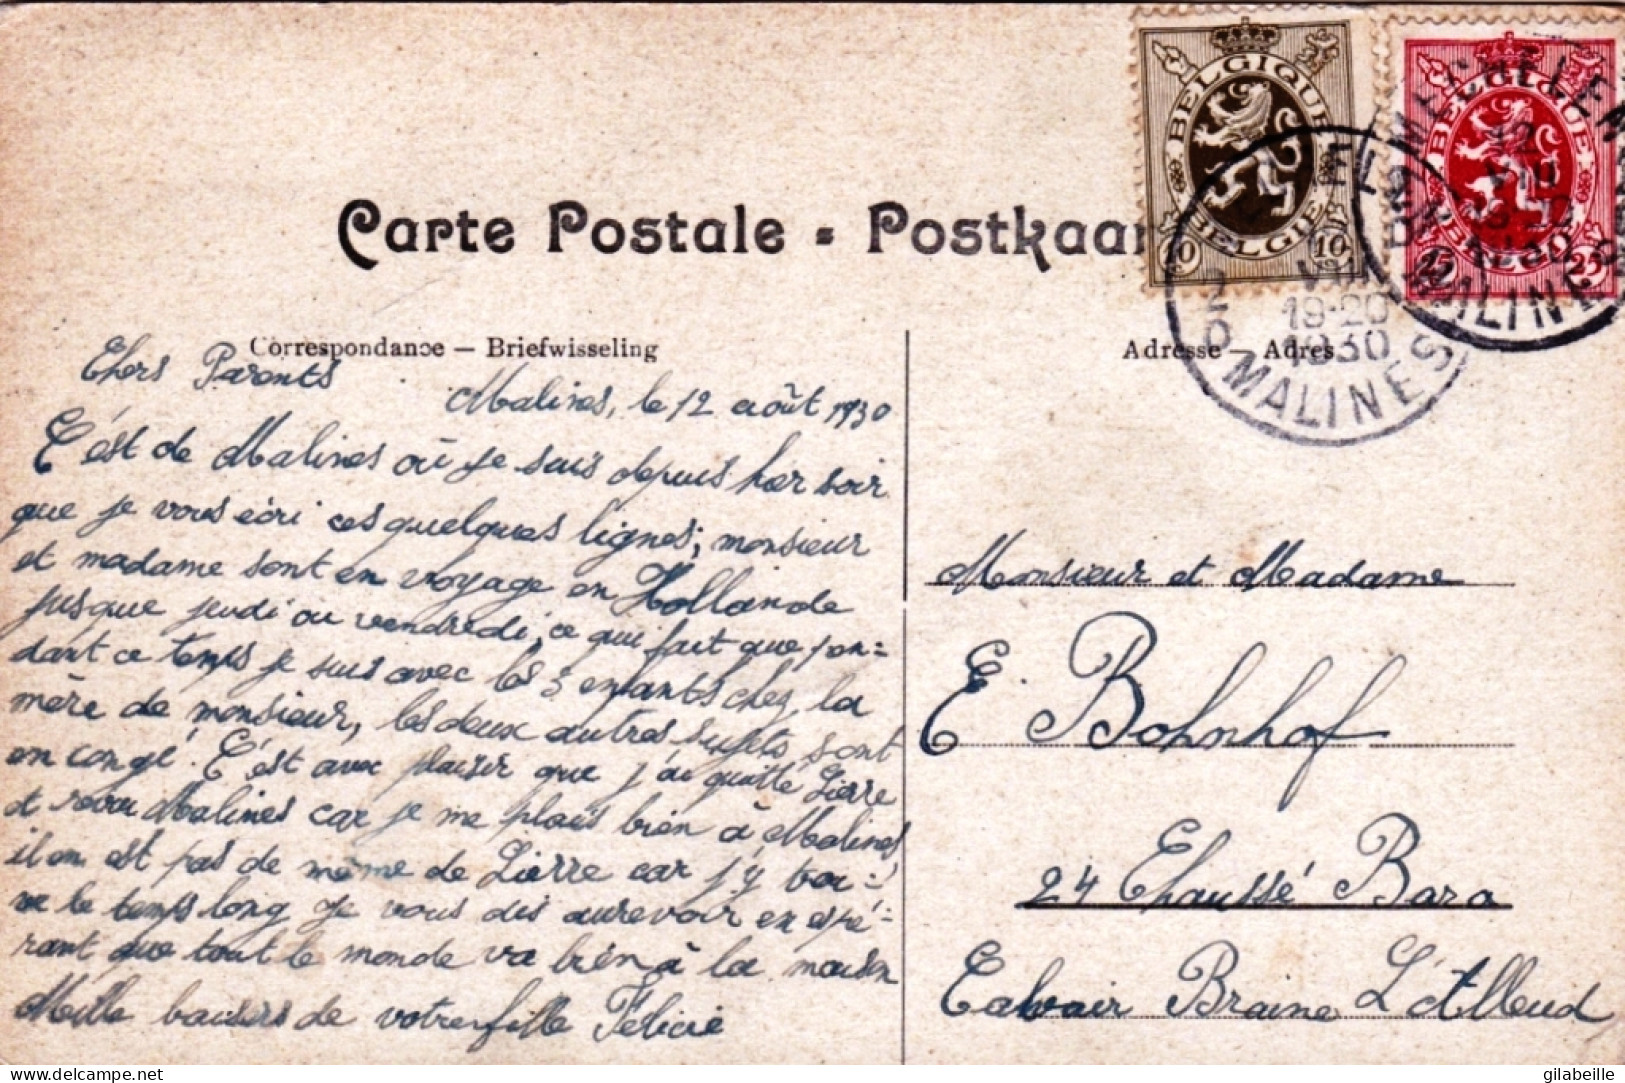 Carte Postale - Postkaar
BELGIQUE
BELGIE
10 10
BELGIQUE
BELGIE
25 25
MECHELEN
12
VIII
1930
MALINES
2
D
VIII
19-20
1930
MALINES
Correspondance — Briefwisseling
Adresse — Adres
Chers Parents
Malines, le 12 août 1930
C'est de Malines où je suis depuis hier soir
que je vous écri ces quelques lignes; monsieur
et madame sont en voyage en Hollande
jusque jeudi ou vendredi, ce qui fait que pen=
dant ce temps je suis avec les 3 enfants chez la
mère de monsieur, les deux autres sujets sont
en congé. C'est avec plaisir que j'ai quitté Lierre
et revu Malines car je me plais bien à Malines
il en est pas de même de Lierre car j'y trou=
ve le temps long je vous dis aurevoir en espé=
rant que tout le monde va bien à la maison
Mille baisers de votre fille Félicie
Monsieur et Madame
E. Bohnhof
24 Chaussé Bara
Calvair Braine L'Alleud
gilabeille